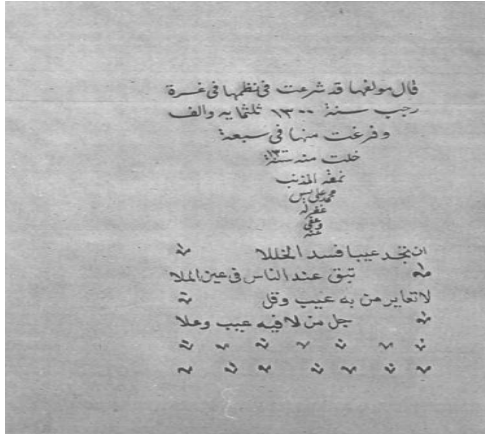 قال مولفها قد شرعت في نظمها في غرة
رجب سنة ١٣٠٠ ثلثمايه والف
وفرغت منها في سبعة
خلت منه سنة ١٣
نمقه المذنب
محمد علي
غفر له
وعفي
عنه
ان تجد عيبا فسد الخللا
تبق عند الناس في عين الملا
لا تعاير من به عيب وقل
جل من لا فيه عيب وعلا